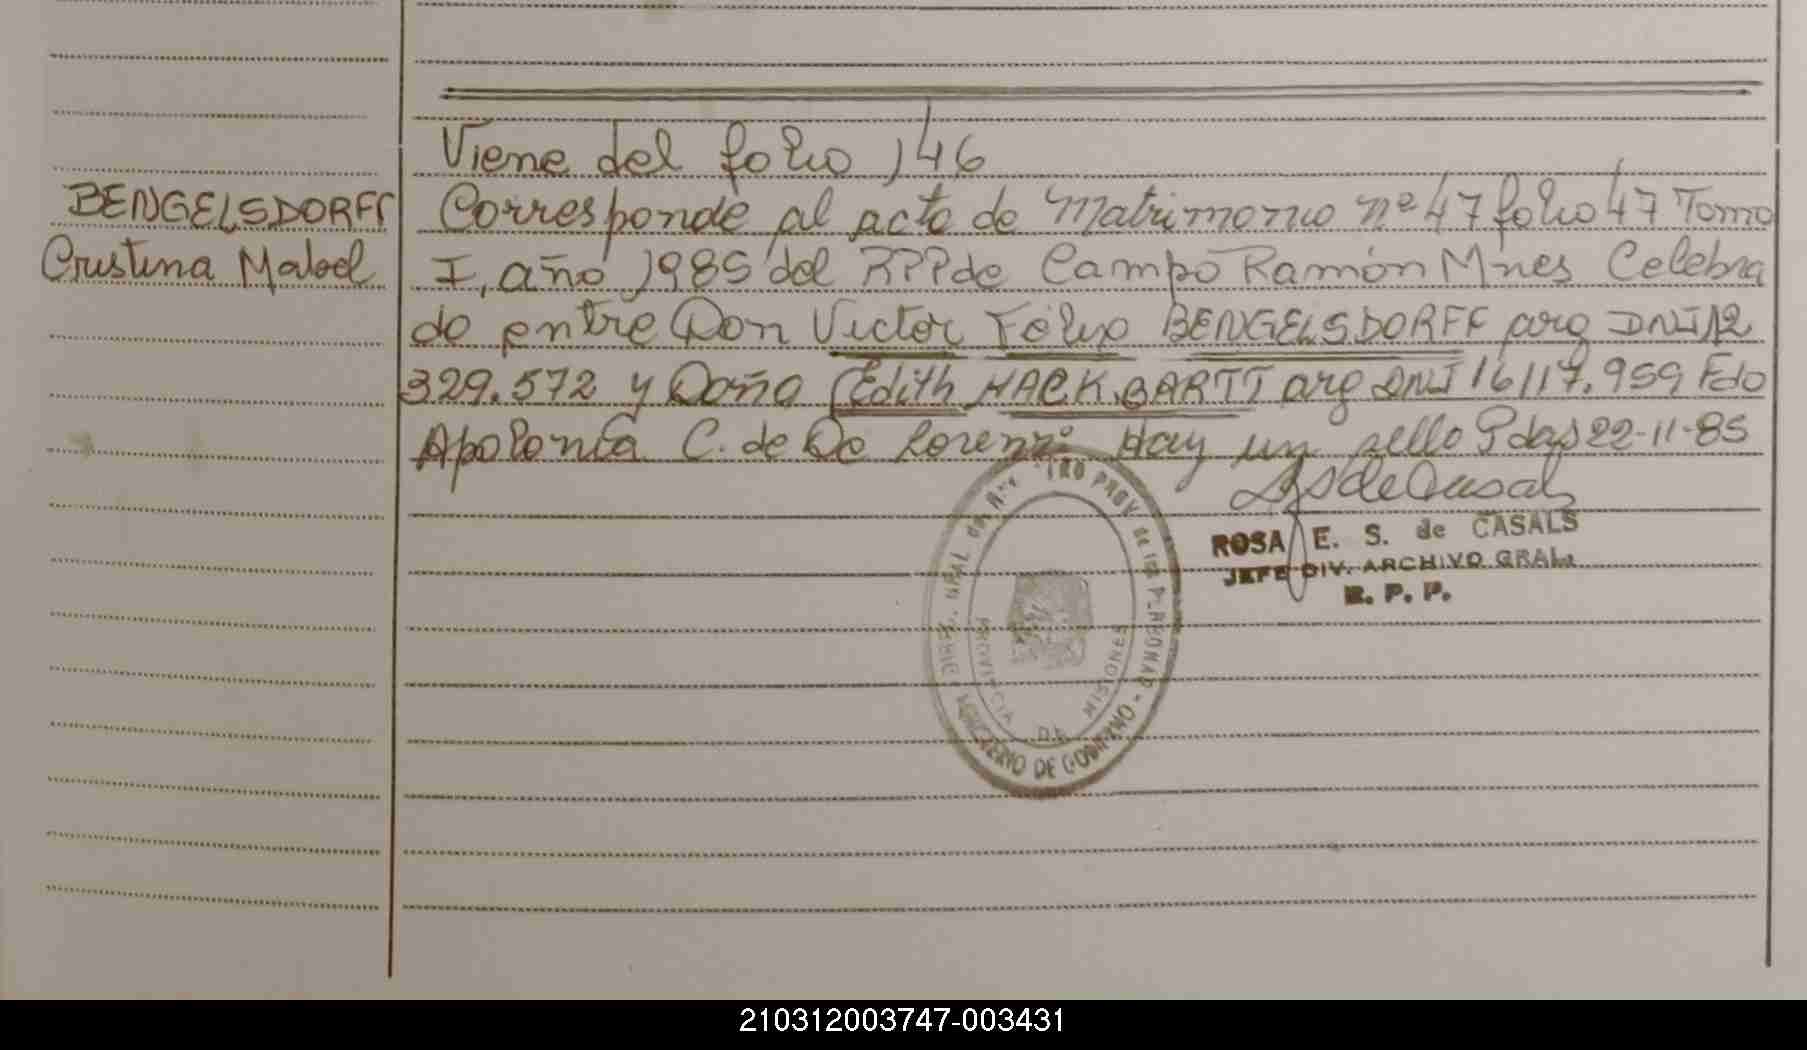 Viene del folio 146
BENGELSDORFF
Cristina Mabel
Corresponde al acta de Matrimonio nº 47 folio 47 Tomo
I, año 1985 del RPP de Campo Ramón Mnes Celebra
do entre Don Victor Félix BENGELSDORFF arg DNI 12
329.572 y Doña Edith HACK,BARTT arg DNI 16117.959 Fdo
Apolonia C. de De Lorenzi Hay un sello Pdas 22-11-85
ROSA E. S. de CASALS
JEFE DIV. ARCHIVO GRAL.
R. P. P.
PROV. de las
PROVINCIA DE MISIONES
MINISTERIO DE GOBIERNO
210312003747-003431